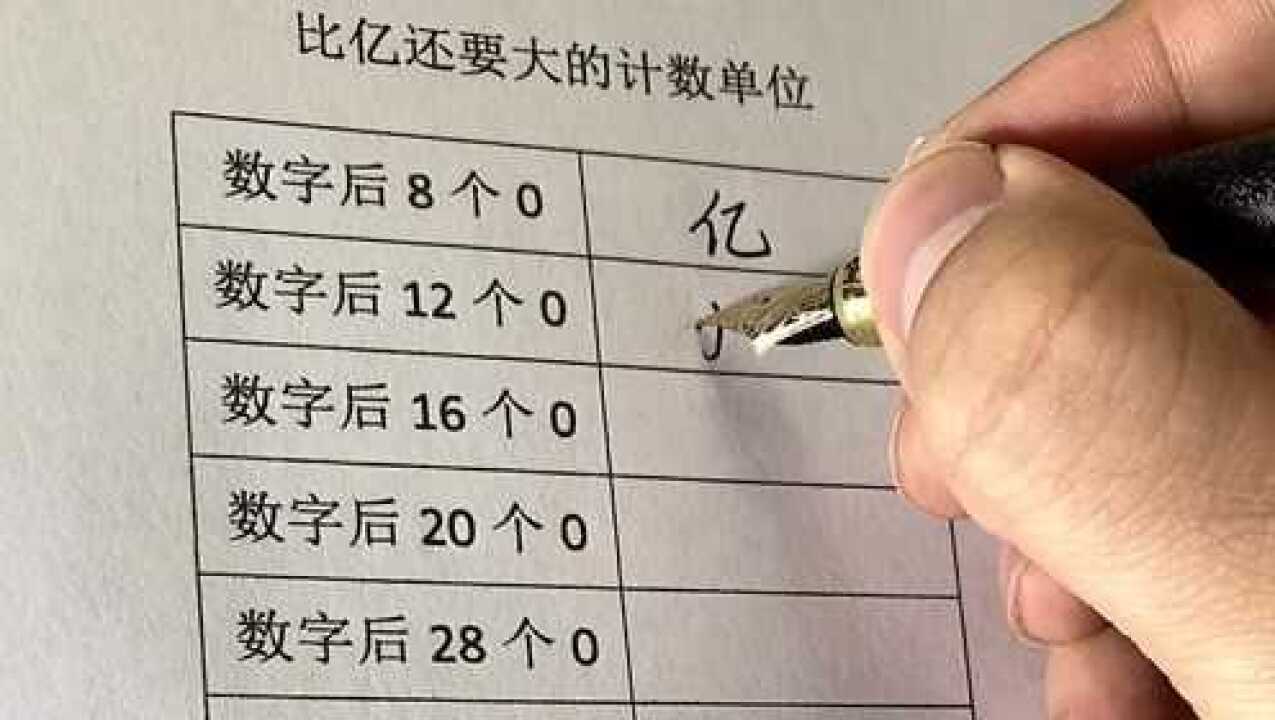 比亿还要大的计数单位
数字后 8 个 0 亿
数字后 12 个 0
数字后 16 个 0
数字后 20 个 0
数字后 28 个 0